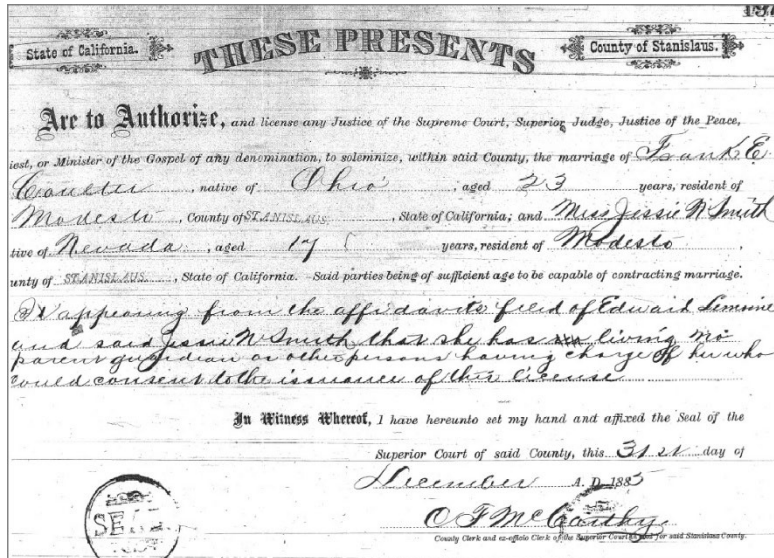 State of California.
THESE PRESENTS
County of Stanislaus.
Are to Authorize, and license any Justice of the Supreme Court, Superior Judge, Justice of the Peace,
iest, or Minister of the Gospel of any denomination, to solemnize, within said County, the marriage of Frank E
Coulter, native of Ohio, aged 23 years, resident of
Modesto, County of STANISLAUS, State of California; and Miss Jessie N Smith
tive of Nevada, aged 17 years, resident of Modesto,
unty of STANISLAUS, State of California. Said parties being of sufficient age to be capable of contracting marriage.
It appearing from the affidavits filed of Edward
and said Jessie N Smith that she has living no
parent guardian or other persons having charge of her who
could consent to the issuance of this license
In Witness Whereof, I have hereunto set my hand and affixed the Seal of the
Superior Court of said County, this 31st day of
December A. D. 1885
O F McCarthy
County Clerk and ex-officio Clerk of the Superior Court in and for said Stanislaus County.